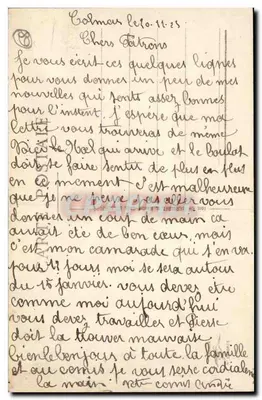 Colmar le 20.11.25
Chers Patrons
Je vous écrit ces quelques lignes
pour vous donner un peu de mes
nouvelles qui sont assez bonnes
pour l'instent. J'espère que ma
lettre vous trouveras de même
le Nal qui arrive et le boulot
doit se faire sentir de plus en plus
en ce moment c'est malheureux
que je ne puisse pas aller vous
donner un coup de main ca
aurait été de bon cœur mais
c'est mon camarade qui s'en va
pour 15 jours moi se sera autour
du 15 janvier. vous devez être
comme moi aujourd'hui
vous devez travailler et
doit la trouver mauvaise
bien le bonjour à toute la famille
et qui comis je vous serre cordialem
la main. votre comis